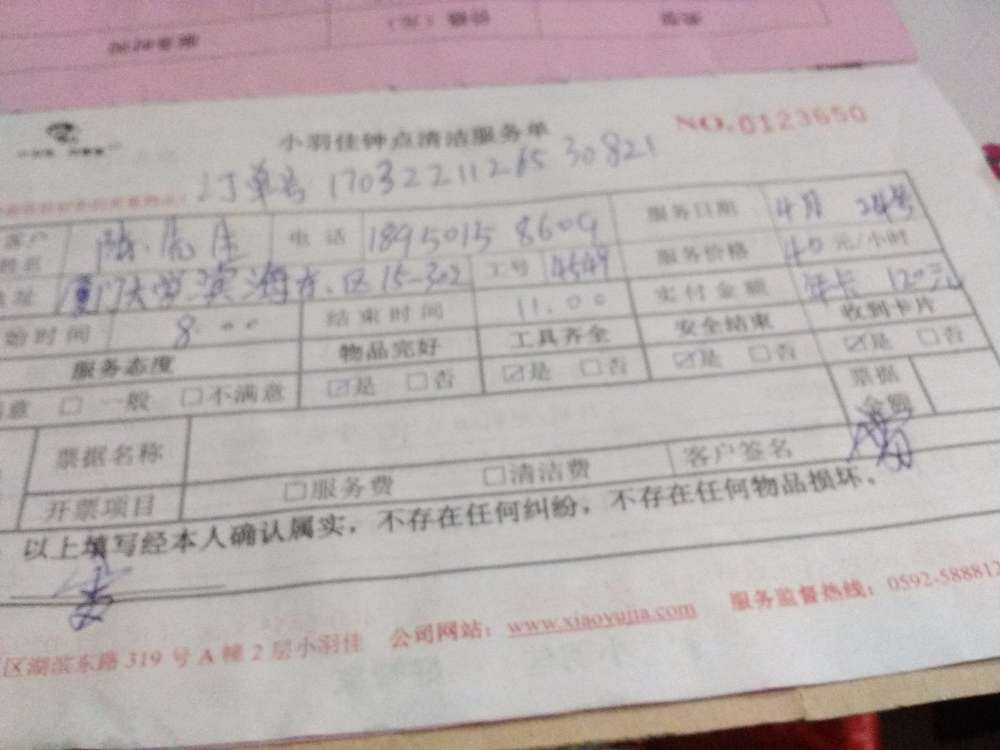 价格（元）
小羽佳钟点清洁服务单 NO.0123650
订单号 17032211265 30821
客户 陈 电话 18950158609 服务日期 4月 24号
姓名
地址 厦门大学滨海东区15-302 工号 4549 服务价格 40 元/小时
始时间 8:00 结束时间 11:00 实付金额 年卡 120元
服务态度 物品完好 工具齐全 安全结束 收到卡片
意 □ 一般 □不满意 ☑是 □否 ☑是 □否 ☑是 □否 ☑是 □否
票据名称 票据金额
开票项目 □服务费 □清洁费 客户签名
以上填写经本人确认属实，不存在任何纠纷，不存在任何物品损坏。
区湖滨东路 319 号 A 幢 2 层小羽佳 公司网站：www.xiaoyujia.com 服务监督热线：0592-588812